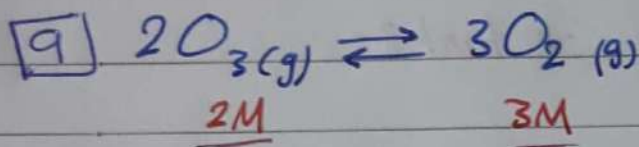 9 2O₃(g) ⇌ 3O₂ (g)
2M 3M